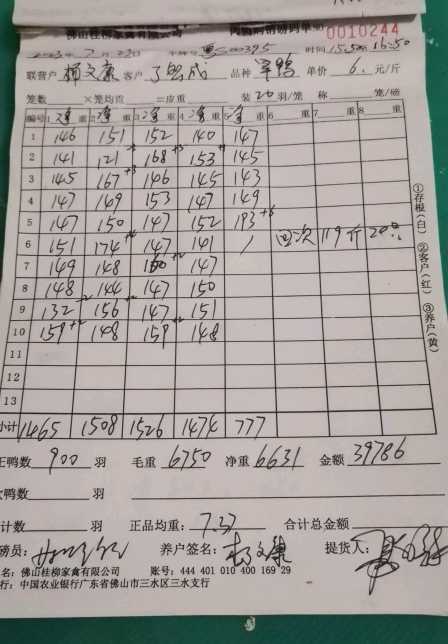 佛山桂柳家禽有限公司 肉鸭购销磅码单 No 0010244
2023年7月22日 粤E00395 时间 15:50 16:50
联营户 杨文康 客户 品种 单价 6. 元/斤
笼数 ×笼均重 =皮重 装20羽/笼 称 笼/磅
编号 1 重 2 重 3 重 4 重 5 重 6 重 7 重 8 重
1 146 151 152 140 147
2 141 121 168 +3 153 145
3 145 167 +3 146 145 143
4 147 149 153 147 149
5 147 150 147 152 193 +6
6 151 174 147 141 / 回次 119斤 20只
7 149 148 150 147
8 148 144 147 150
9 132 156 147 151
10 159 148 159 148
11
12
13
小计 1465 1508 1526 1474 777
正鸭数 900 羽 毛重 6750 净重 6631 金额 39786
次鸭数 羽
合计数 羽 正品均重: 7.37 合计总金额
磅员: 养户签名: 杨文康 提货人:
名: 佛山桂柳家禽有限公司 账号: 444 401 010 400 169 29
行: 中国农业银行广东省佛山市三水区三水支行
①存根(白) ②客户(红) ③养户(黄)